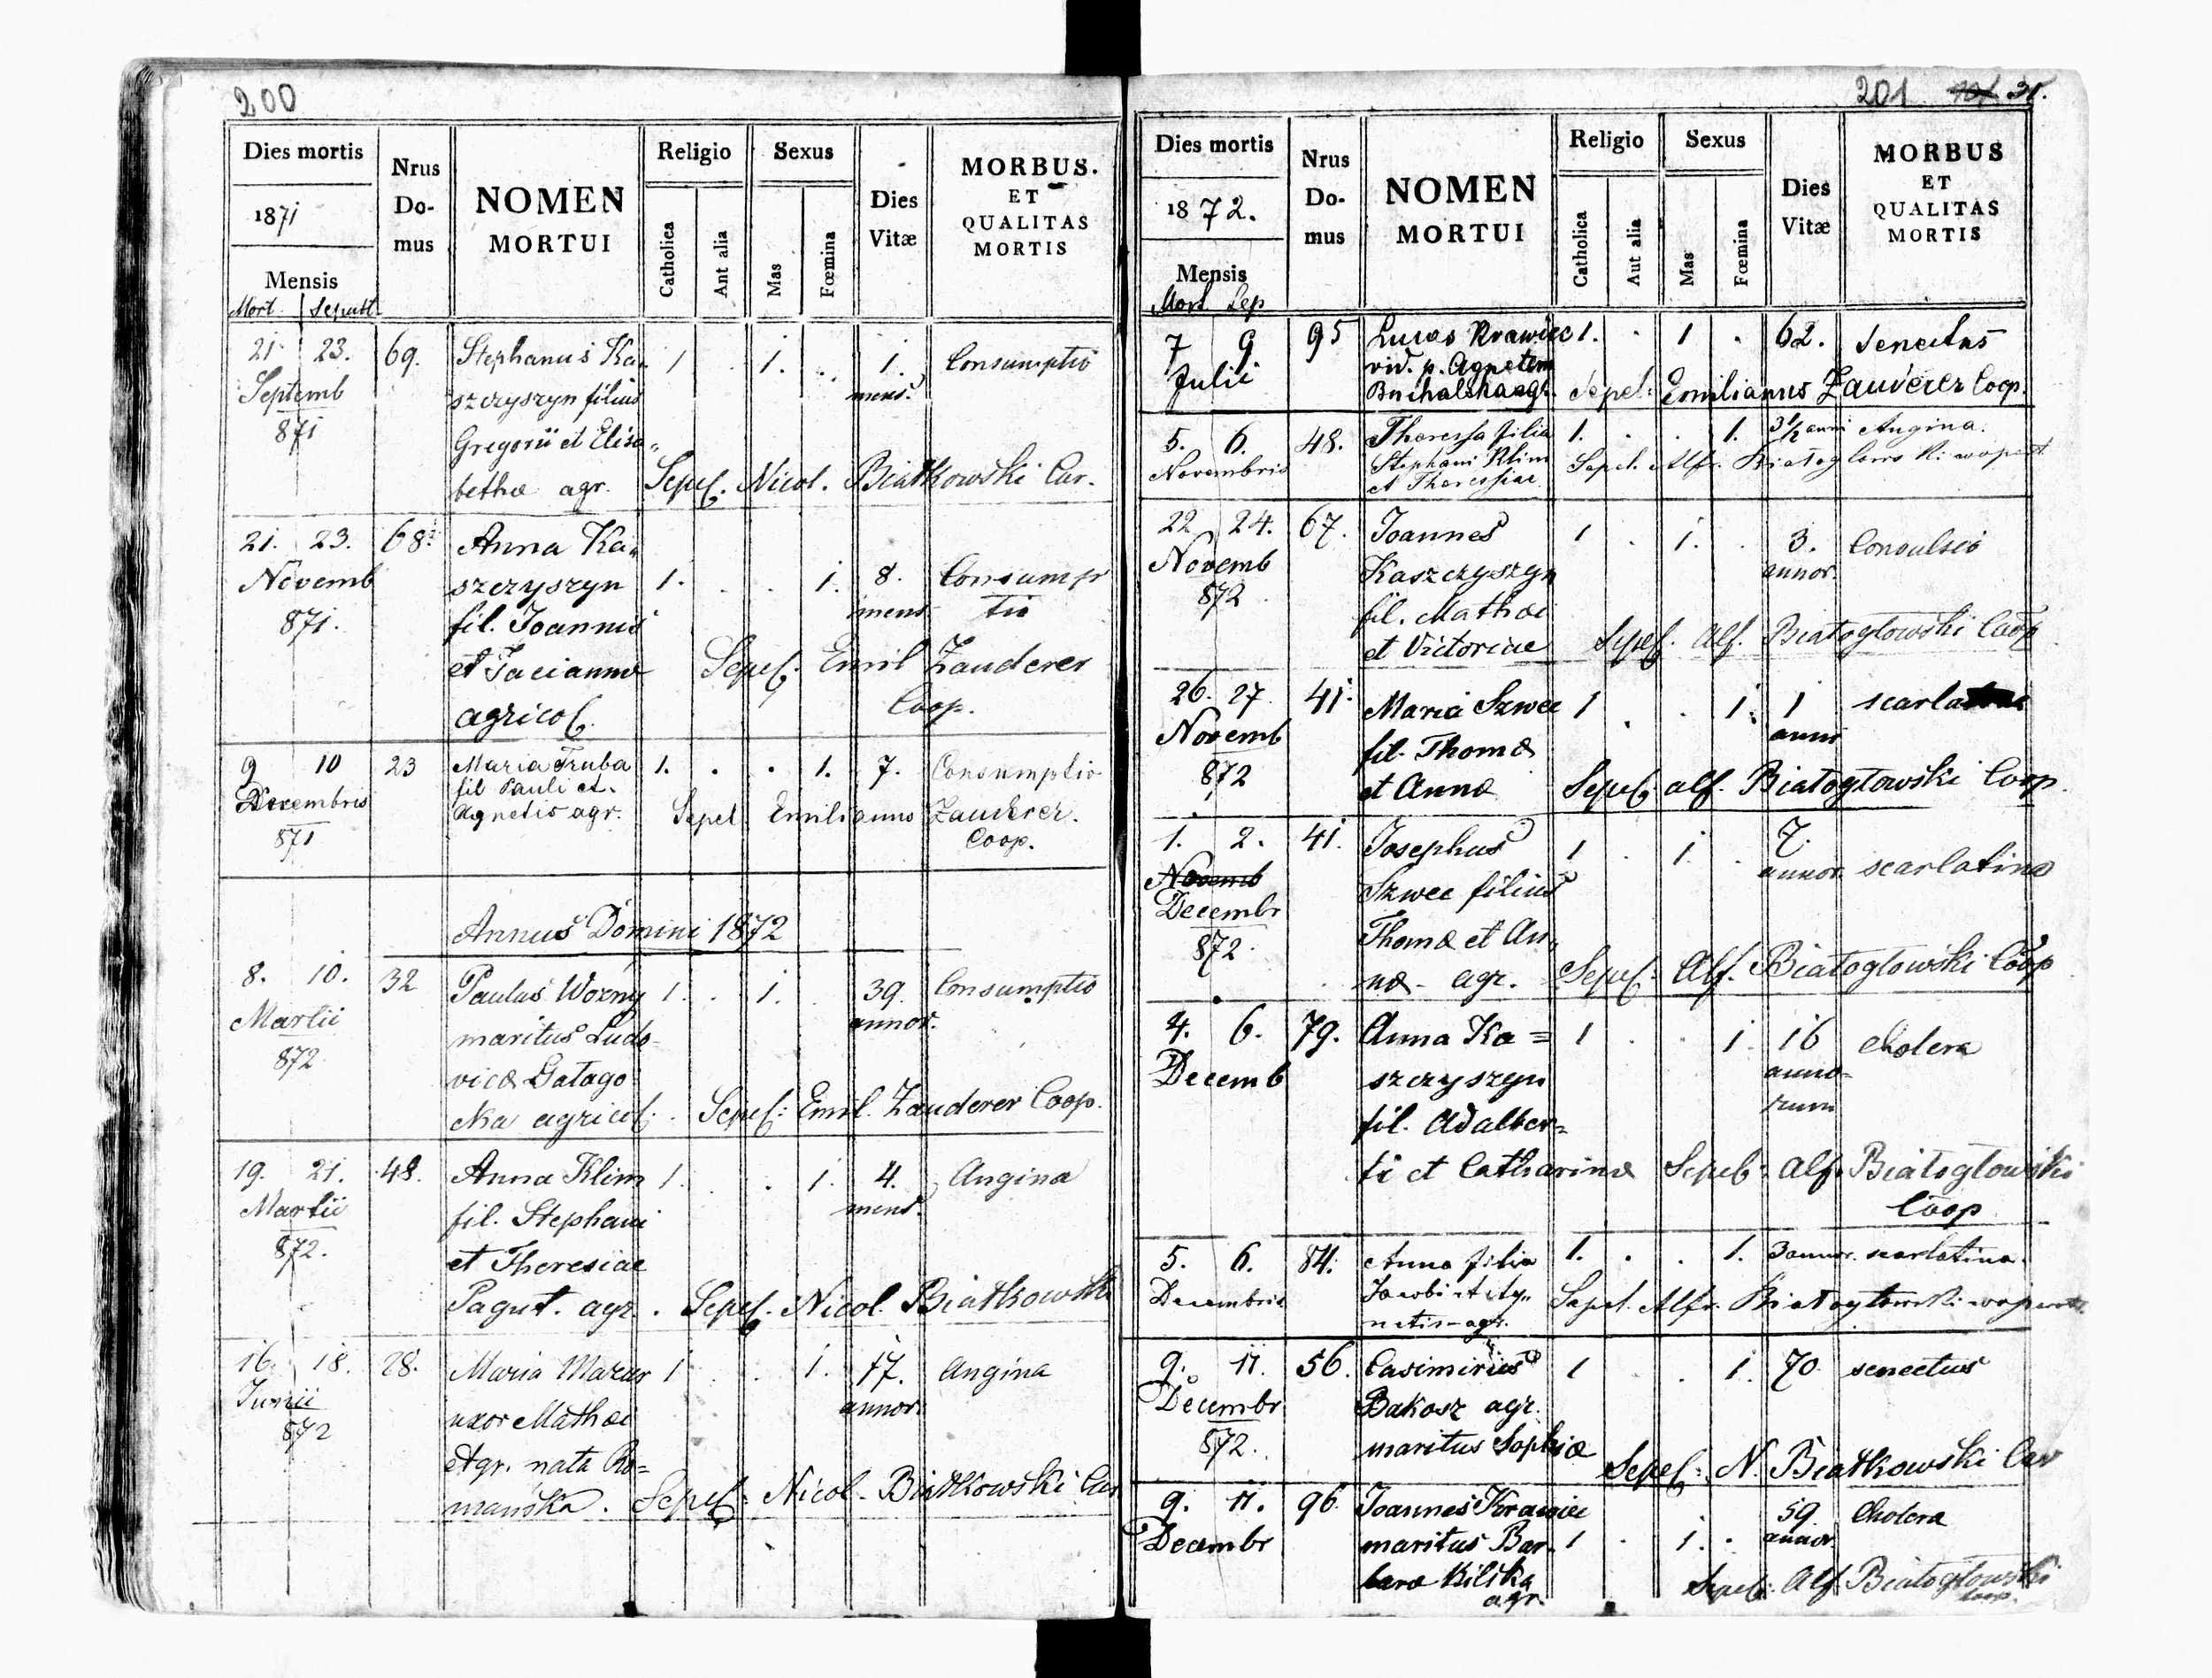 200
Dies mortis
1871
Mensis
Mort. Sepult.
Nrus
Do-
mus
NOMEN
MORTUI
Religio
Catholica
Aut alia
Sexus
Mas
Fœmina
Dies
Vitæ
MORBUS.
ET
QUALITAS
MORTIS
21 23. 69. Stephanus Ka„ 1 . 1. . 1. Consumptio
Septemb szczyszyn filius mens.
871 Gregorii et Elisa„
bethæ agr. Sepel. Nicol. Białkowski Cur.
21. 23. 68. Anna Ka„
Novemb szczyszyn 1. . . 1. 8. Consump
871. fil. Joannis mens. tio
et Tacianna Sepel. Emil Zauderer
agricol. Coop.
9 10 23 Maria Truba 1. . . 1. 7. Consumptio
Decembris fil Pauli et
871 Agnetis agr. Sepel Emilianus Zauderer.
Coop.
Annus Domini 1872
8. 10. 32 Paulus Woźny 1. . 1. 39. Consumptio
Martii maritus Ludo- annor.
872 vicæ Gatago-
cka agricol. Sepel: Emil. Zauderer Coop.
19. 21. 48. Anna Klim 1. . . 1. 4. Angina
Martii fil. Stephani mens.
872. et Theresiae
Pagut. agr. Sepel. Nicol. Białkowski
16. 18. 28. Maria Mazur 1 . . 1. 17. Angina
Junii uxor Mathæi annor.
872 Agr. nata Ro=
mańska. Sepel. Nicol. Białkowski Cur
201 31.
Dies mortis
1872.
Mensis
Mort. Sep.
Nrus
Do-
mus
NOMEN
MORTUI
Religio
Catholica
Aut alia
Sexus
Mas
Fœmina
Dies
Vitæ
MORBUS
ET
QUALITAS
MORTIS
7 9 95 Lucas Krawiec 1. . 1 . 62. Senectus
Julii vid. p. Agnetem
agr. Sepel: Emilianus Zauderer Coop.
5. 6. 48. Theressa filia 1. . . 1. 3 1/2 anni Angina.
Novembris Stephani Klim Sepel. Alfr. Białogłowski
et Theressiae
22 24. 67. Joannes 1 . 1. . 3. Convulsio
Novemb Kaszczyszyn annor.
872 fil. Mathæi
et Victoriae Sepel. Alf. Białogłowski Coop
26. 27 41. Maria Szwec 1 . . 1. 1 scarlatina
Novemb fil. Thomæ anni
872 et Annæ Sepel. alf. Białogłowski Coop.
1. 2. 41. Josephus 1 . 1. . 7.
Novemb Szwec filius annor. scarlatina
Decembr Thomæ et An„
872. næ - agr. Sepel. Alf. Białogłowski Coop
4. 6. 79. Anna Ka= 1 . . 1. 16 cholera
Decemb szczyszyn anno-
fil. Adalber= rum
ti et Catharinæ Sepel. Alf. Białogłowski
Coop
5. 6. 84. Anna filia 1. . . 1. 3 annor. scarlatina.
Decembris Jacobi et Ag„ Sepel. Alfr. Białogłowski
netis - agr.
9. 11. 56. Casimirius 1 . . 1. 70 senectus
Decembr Bakosz agr.
872. maritus Sophiæ
Sepel. N. Białkowski Cur
9. 11. 96. Joannes Krawiec 59. Cholera
Decembr maritus Bar- 1 . 1. . annor.
baræ Kilska
agr. Sepel. Alf. Białogłowski
Coop.